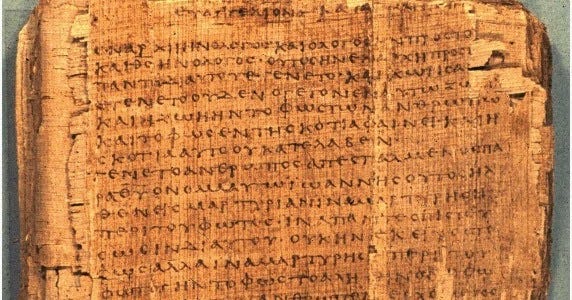 ΕΥΑΓΓΕΛΙΟΝ ΚΑΤΑ
ΕΝ ΑΡΧΗΙ ΗΝ Ο ΛΟΓΟΣ ΚΑΙ Ο ΛΟΓΟΣ ΗΝ ΠΡΟΣ ΤΟ
ΚΑΙ ΘΣ ΗΝ Ο ΛΟΓΟΣ ΟΥΤΟΣ ΗΝ ΕΝ ΑΡΧΗ ΠΡΟΣ
ΠΑΝΤΑ ΔΙ ΑΥΤΟΥ ΕΓΕΝΕΤΟ ΚΑΙ ΧΩΡΙΣ
ΕΓΕΝΕΤΟ ΟΥΔΕΝ Ο ΓΕΓΟΝΕΝ ΕΝ ΑΥΤΩ ΖΩ
ΚΑΙ Η ΖΩΗ ΗΝ ΤΟ ΦΩΣ ΤΩΝ ΑΝΘΡΩΠΩ
ΚΑΙ ΤΟ ΦΩΣ ΕΝ ΤΗ ΣΚΟΤΙΑ ΦΑΙΝΕΙ ΚΑΙ Η
ΣΚΟΤΙΑ ΑΥΤΟ ΟΥ ΚΑΤΕΛΑΒΕΝ
ΕΓΕΝΕΤΟ ΑΝΘΡΩΠΟΣ ΑΠΕΣΤΑΛΜΕΝΟΣ ΠΑ
ΡΑ ΘΥ ΟΝΟΜΑ ΑΥΤΩ ΙΩΑΝΝΗΣ ΟΥΤΟΣ ΗΛ
ΘΕΝ ΕΙΣ ΜΑΡΤΥΡΙΑΝ ΙΝΑ ΜΑΡΤΥΡΗΣΗ
ΠΕΡΙ ΤΟΥ ΦΩΤΟΣ ΙΝΑ ΠΑΝΤΕΣ ΠΙΣΤΕΥ
ΣΩΣΙΝ ΔΙ ΑΥΤΟΥ ΟΥΚ ΗΝ ΕΚΕΙ
ΦΩΣ ΑΛΛΑ ΙΝΑ ΜΑΡΤΥΡΗΣΗ
ΦΩΤΟΣ ΗΝ ΤΟ ΦΩΣ ΤΟ